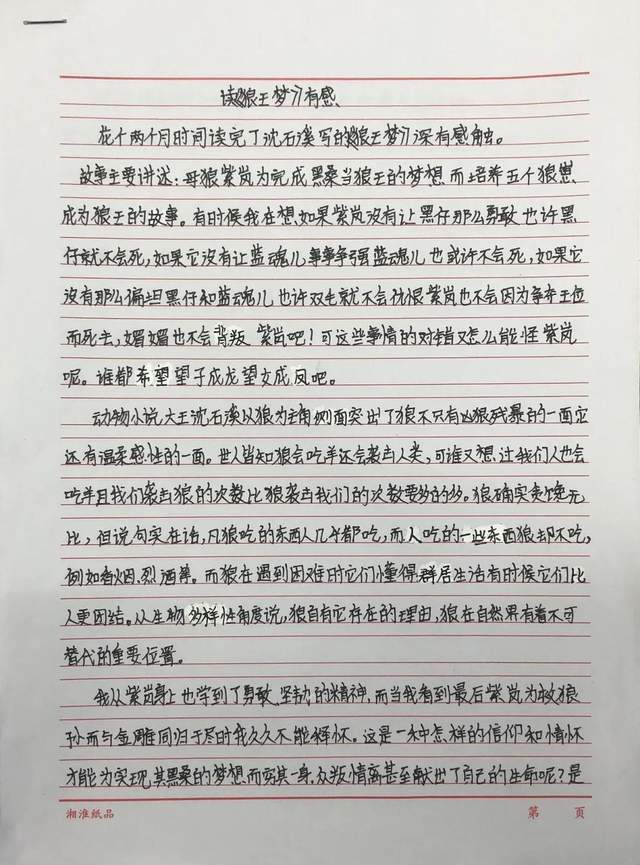 读《狼王梦》有感
花个两个月时间读完了沈石溪写的《狼王梦》深有感触。
故事主要讲述:母狼紫岚为完成黑桑当狼王的梦想而培养五个狼崽
成为狼王的故事。有时候我在想如果紫岚没有让黑仔那么勇敢也许黑
仔就不会死,如果它没有让蓝魂儿事事争强蓝魂儿也或许不会死,如果它
没有那么偏坦黑仔和蓝魂儿也许双毛就不会仇恨紫岚也不会因为争夺王位
而死去,媚媚也不会背叛紫岚吧!可这些事情的对错又怎么能怪紫岚
呢。谁都希望望子成龙望女成凤吧。
动物小说大王沈石溪以狼为主角侧面突出了狼不只有凶狠残暴的一面它
还有温柔感性的一面。世人皆知狼会吃羊还会袭击人类,可谁又想过我们人也会
吃羊且我们袭击狼的次数比狼袭击我们的次数要多的多。狼确实贪馋无
比,但说句实在话,凡狼吃的东西人几乎都吃,而人吃的一些东西狼却不吃,
例如香烟、烈酒等。而狼在遇到困难时它们懂得群居生活有时候它们比
人更团结。从生物多样性角度说,狼自有它存在的理由,狼在自然界有着不可
替代的重要位置。
我从紫岚身上也学到了勇敢、坚韧的精神,而当我看到最后紫岚为救狼
孙而与金雕同归于尽时我久久不能释怀。这是一种怎样的信仰和情怀
才能为实现其黑桑的梦想而穷其一身,众叛情离甚至献出了自己的生命呢?是
湘淮纸品
第 页